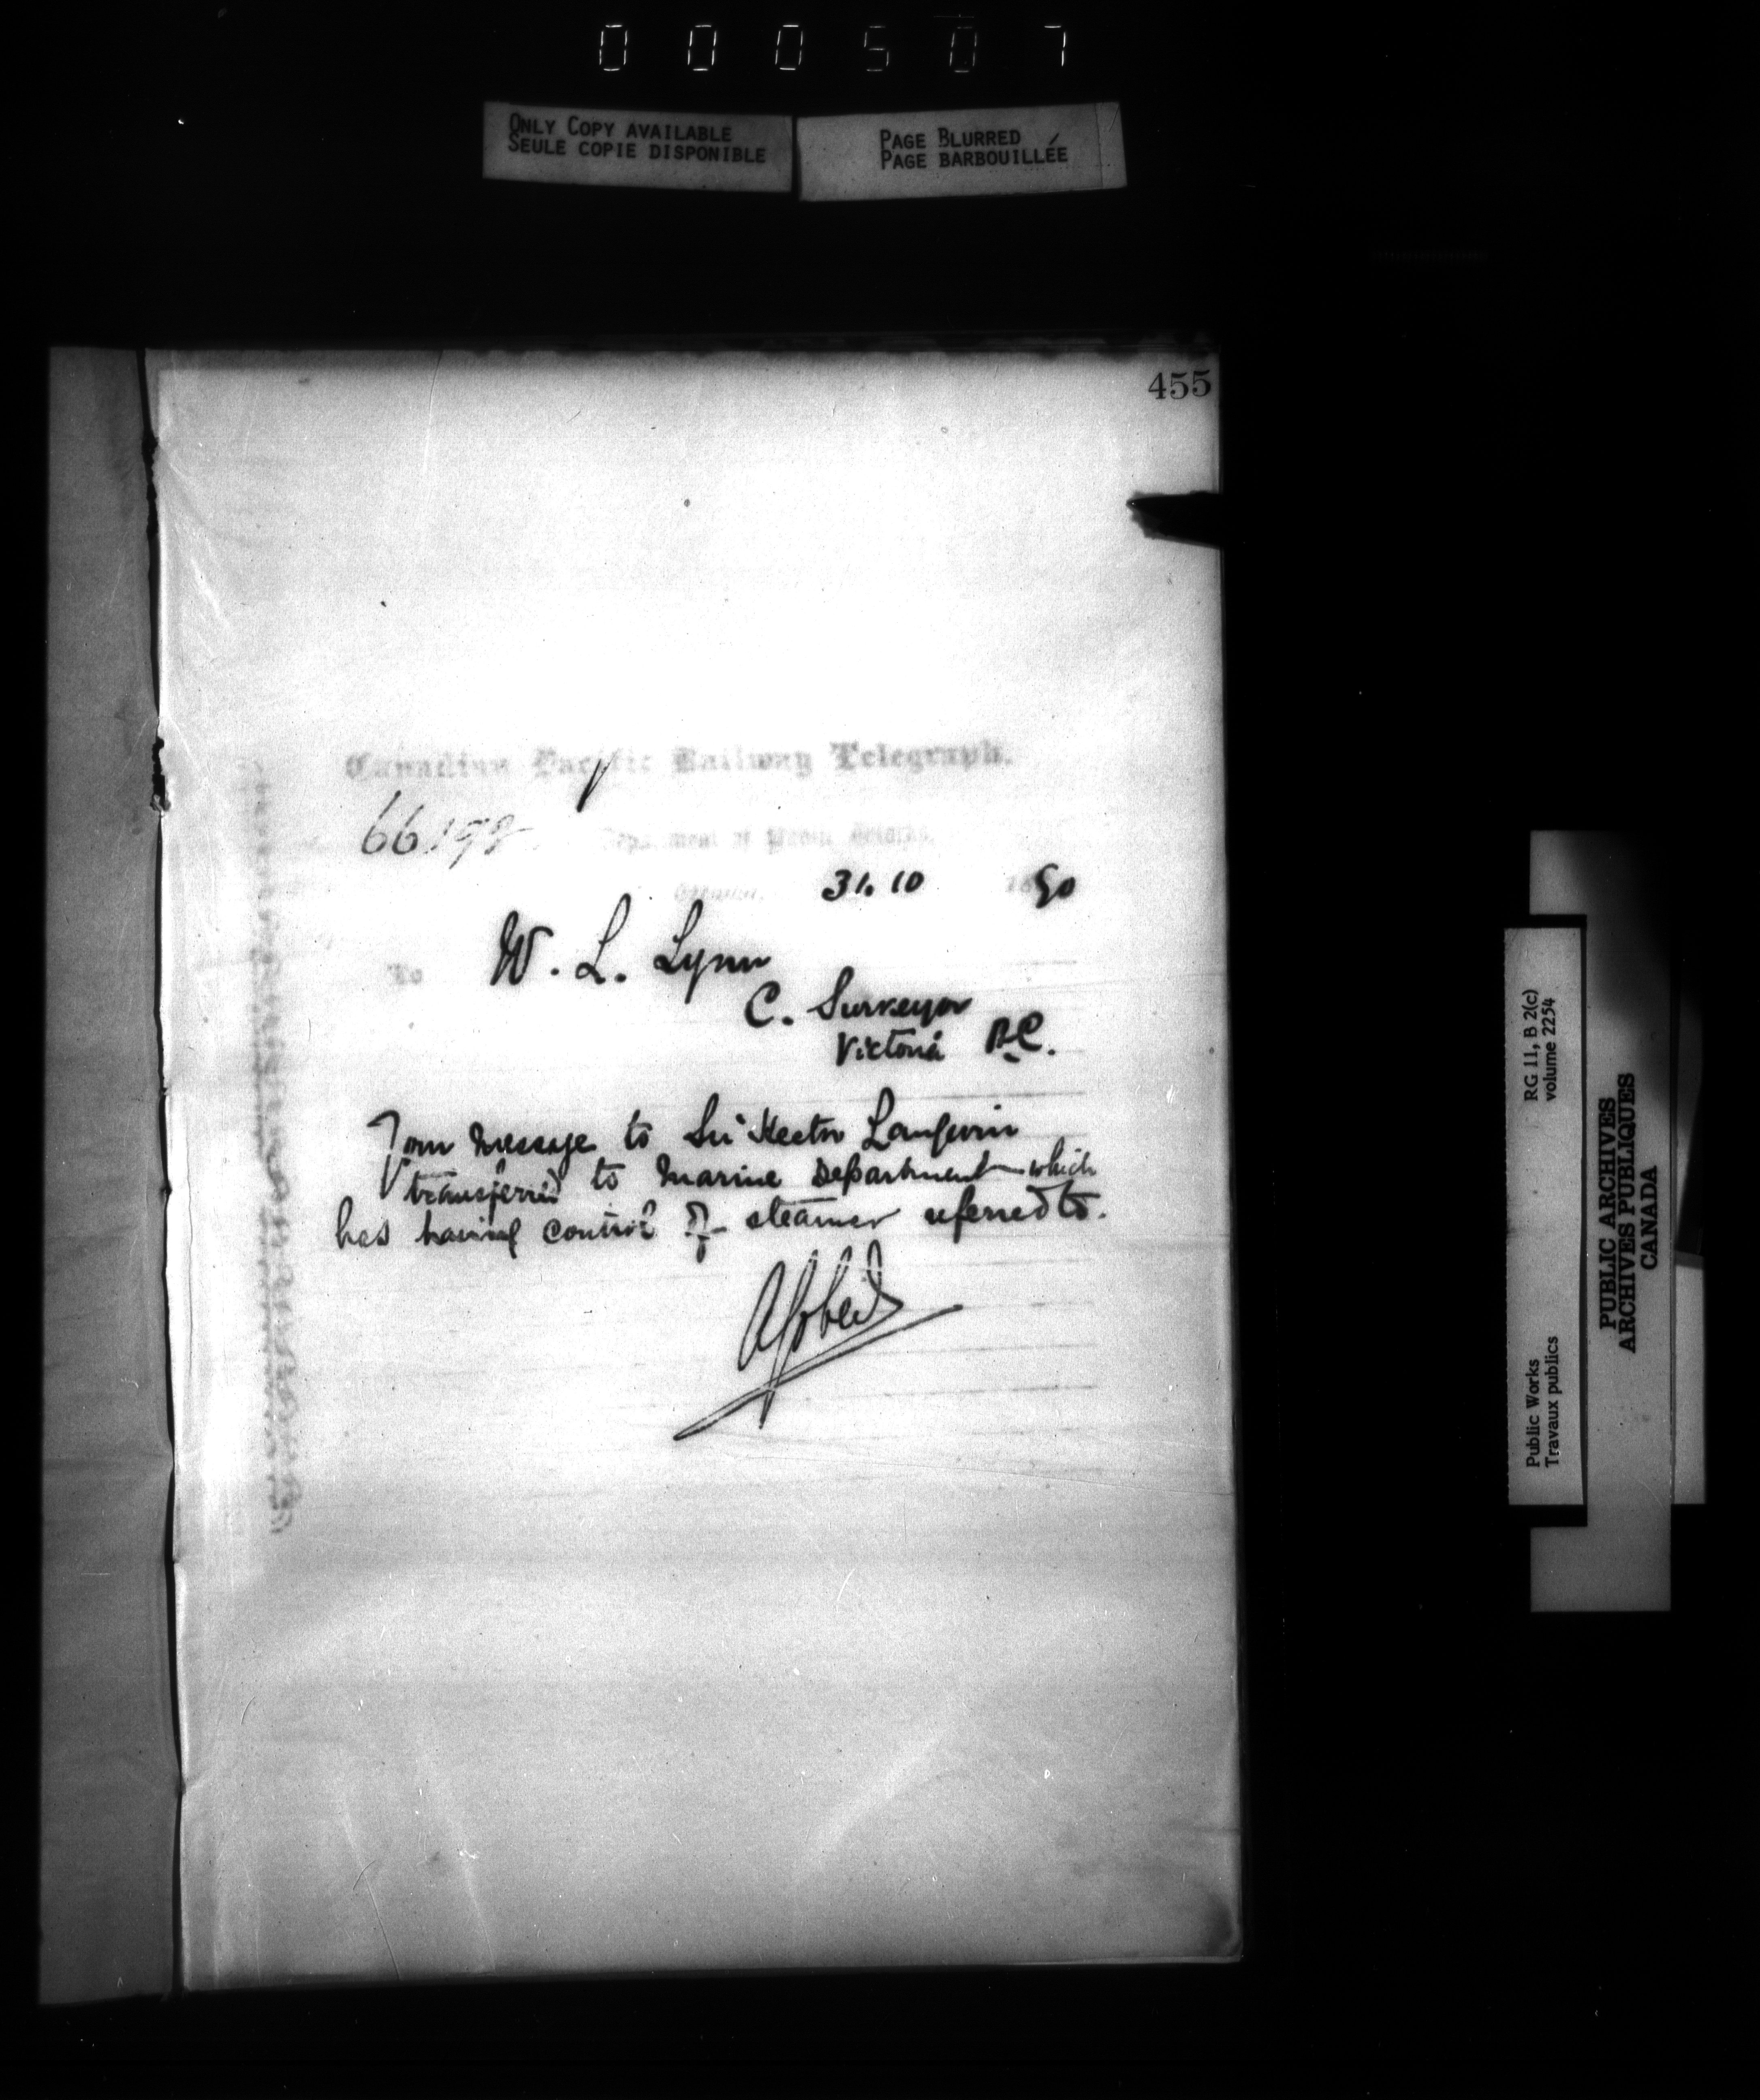 000507
ONLY COPY AVAILABLE
SEULE COPIE DISPONIBLE
PAGE BLURRED
PAGE BARBOUILLÉE
455
Canadian Pacific Railway Telegraph.
66198
Department of Public Works.
Ottawa, 31. 10 1890
To W. L. Lynn
C. Surveyor
Victoria B.C.
Your message to Sir Hector Langevin
transferred to Marine Department which
has control of steamer referred to.
A Gobeil
RG 11, B 2(c)
volume 2254
Public Works
Travaux publics
PUBLIC ARCHIVES
ARCHIVES PUBLIQUES
CANADA